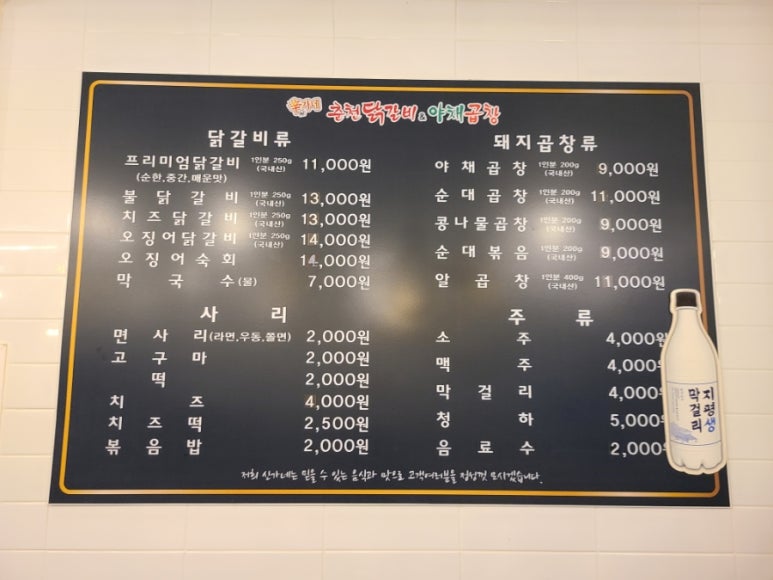 신가네 춘천닭갈비&야채곱창
닭갈비류
프리미엄닭갈비 1인분 250g (국내산) 11,000원
(순한,중간,매운맛)
불닭갈비 1인분 250g (국내산) 13,000원
치즈닭갈비 1인분 250g (국내산) 13,000원
오징어닭갈비 1인분 250g (국내산) 14,000원
오징어숙회 14,000원
막국수(물) 7,000원
사리
면사리(라면,우동,쫄면) 2,000원
고구마 2,000원
떡 2,000원
치즈 4,000원
치즈떡 2,500원
볶음밥 2,000원
돼지곱창류
야채곱창 1인분 200g (국내산) 9,000원
순대곱창 1인분 200g (국내산) 11,000원
콩나물곱창 1인분 200g (국내산) 9,000원
순대볶음 1인분 200g (국내산) 9,000원
알곱창 1인분 400g (국내산) 11,000원
주류
소주 4,000원
맥주 4,000원
막걸리 4,000원
청하 5,000원
음료수 2,000원
지평생
막걸리
저희 신가네는 믿을 수 있는 음식과 맛으로 고객여러분을 정성껏 모시겠습니다.